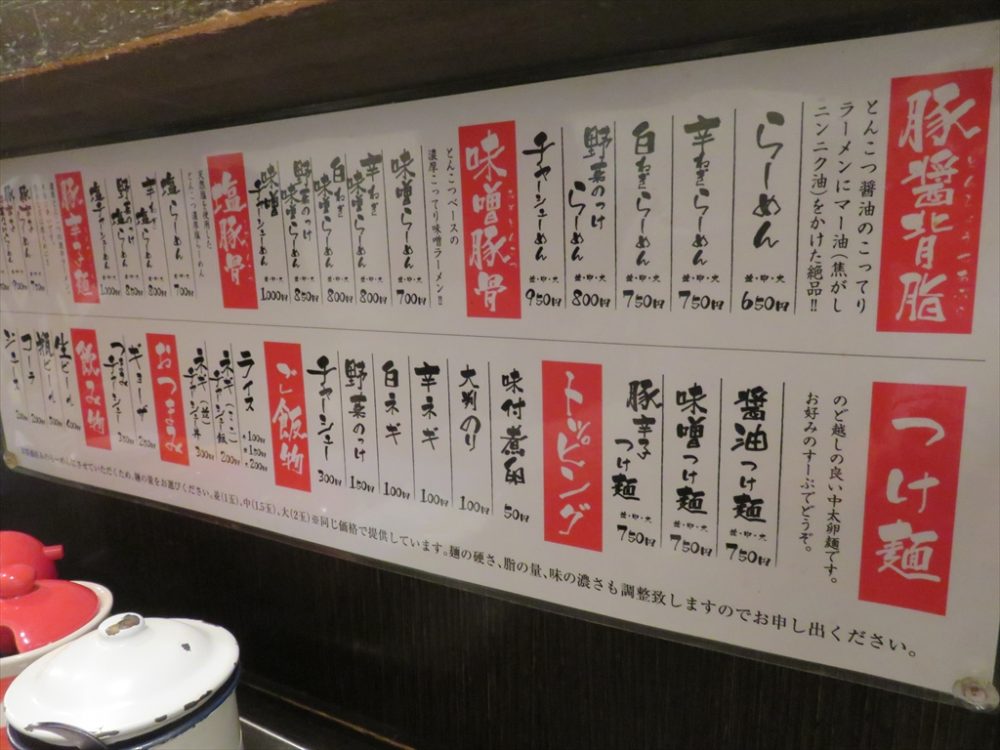 豚醤背脂
とんこつ醤油のこってり
ラーメンにマー油(焦がし
ニンニク油)をかけた絶品!!
らーめん 並・中・大 650円
辛ねぎらーめん 並・中・大 750円
白ねぎらーめん 並・中・大 750円
野菜のっけらーめん 並・中・大 800円
チャーシューめん 並・中・大 950円
味噌豚骨
とんこつベースの
濃厚・こってり味噌ラーメン!!
味噌らーめん 並・中・大 700円
辛ねぎ味噌らーめん 並・中・大 800円
白ねぎ味噌らーめん 並・中・大 800円
野菜のっけ味噌らーめん 並・中・大 850円
味噌チャーシューめん 並・中・大 1,000円
塩豚骨
天然塩を使用した
とんこつ濃厚塩らーめん
塩らーめん 700円
辛ねぎ塩らーめん 800円
野菜のっけ塩らーめん
塩チャーシューめん
豚辛子麺
つけ麺
のど越しの良い中太卵麺です。
お好みのすーぷでどうぞ。
醤油つけ麺 並・中・大 750円
味噌つけ麺 並・中・大 750円
豚辛子つけ麺 並・中・大 750円
トッピング
味付煮卵 50円
大判のり 100円
辛ネギ 100円
白ネギ 100円
野菜のっけ 150円
チャーシュー 300円
ご飯物
ライス 小100円 中150円 大200円
ネギチャーシュー飯(ミニ) 200円
ネギチャーシュー丼(並) 300円
おつまみ
ギョーザ 250円
つまみチャーシュー 350円
飲み物
生ビール
瓶ビール
コーラ
ジュース
らーめんにさせていただくため、麺の量をお選びください。並(1玉)、中(1.5玉)、大(2玉)※同じ価格で提供しています。麺の硬さ、脂の量、味の濃さも調整致しますのでお申し出ください。